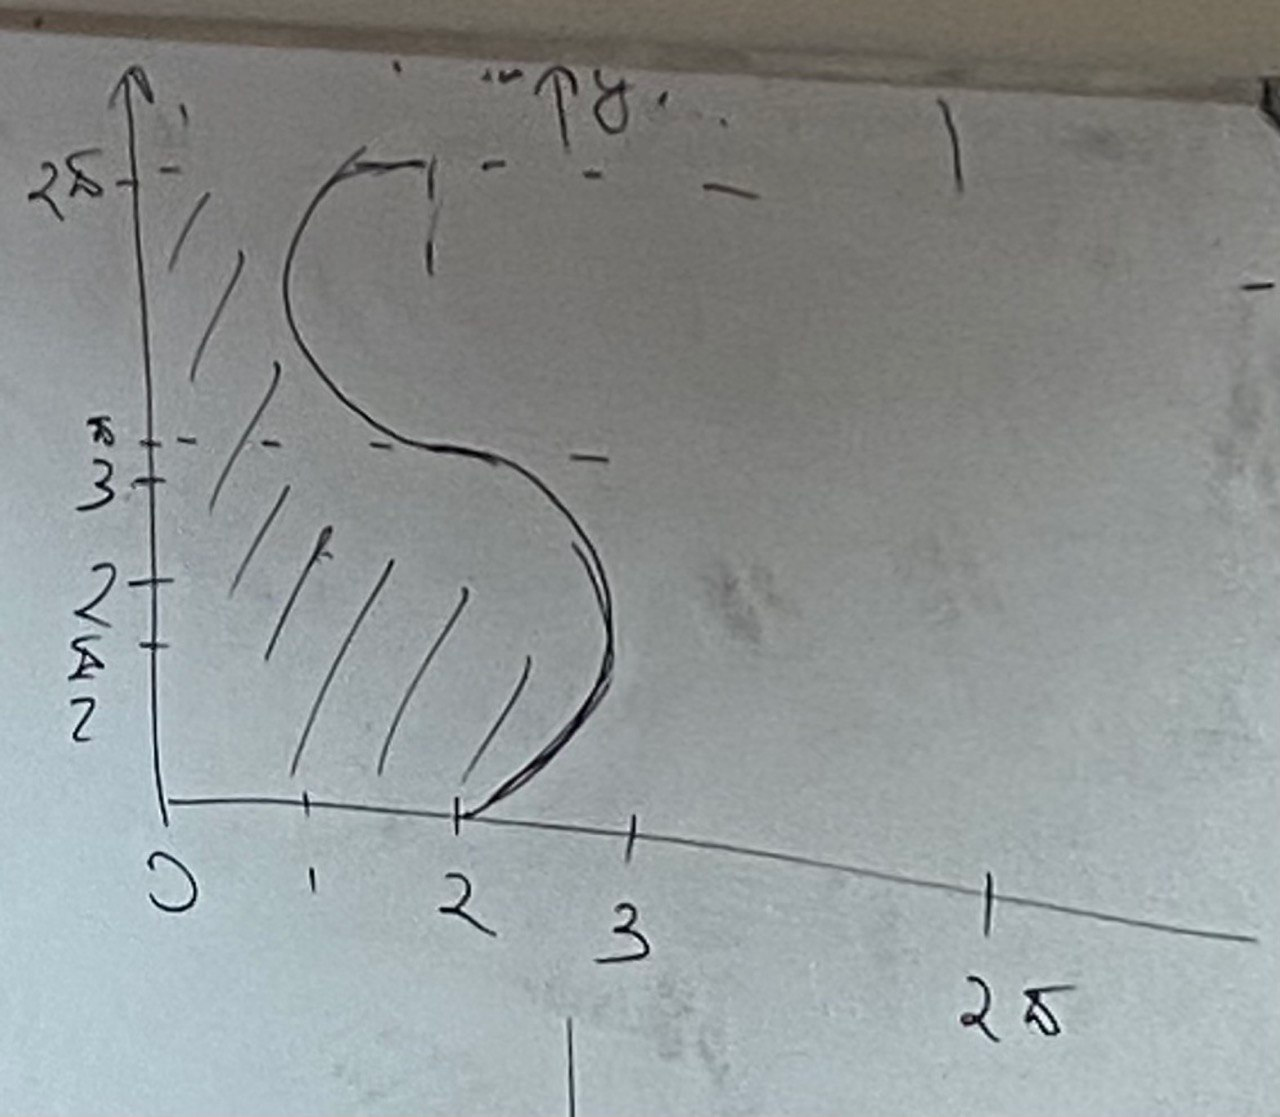 y
2π
π
3
2
π
2
0 1 2 3 2π